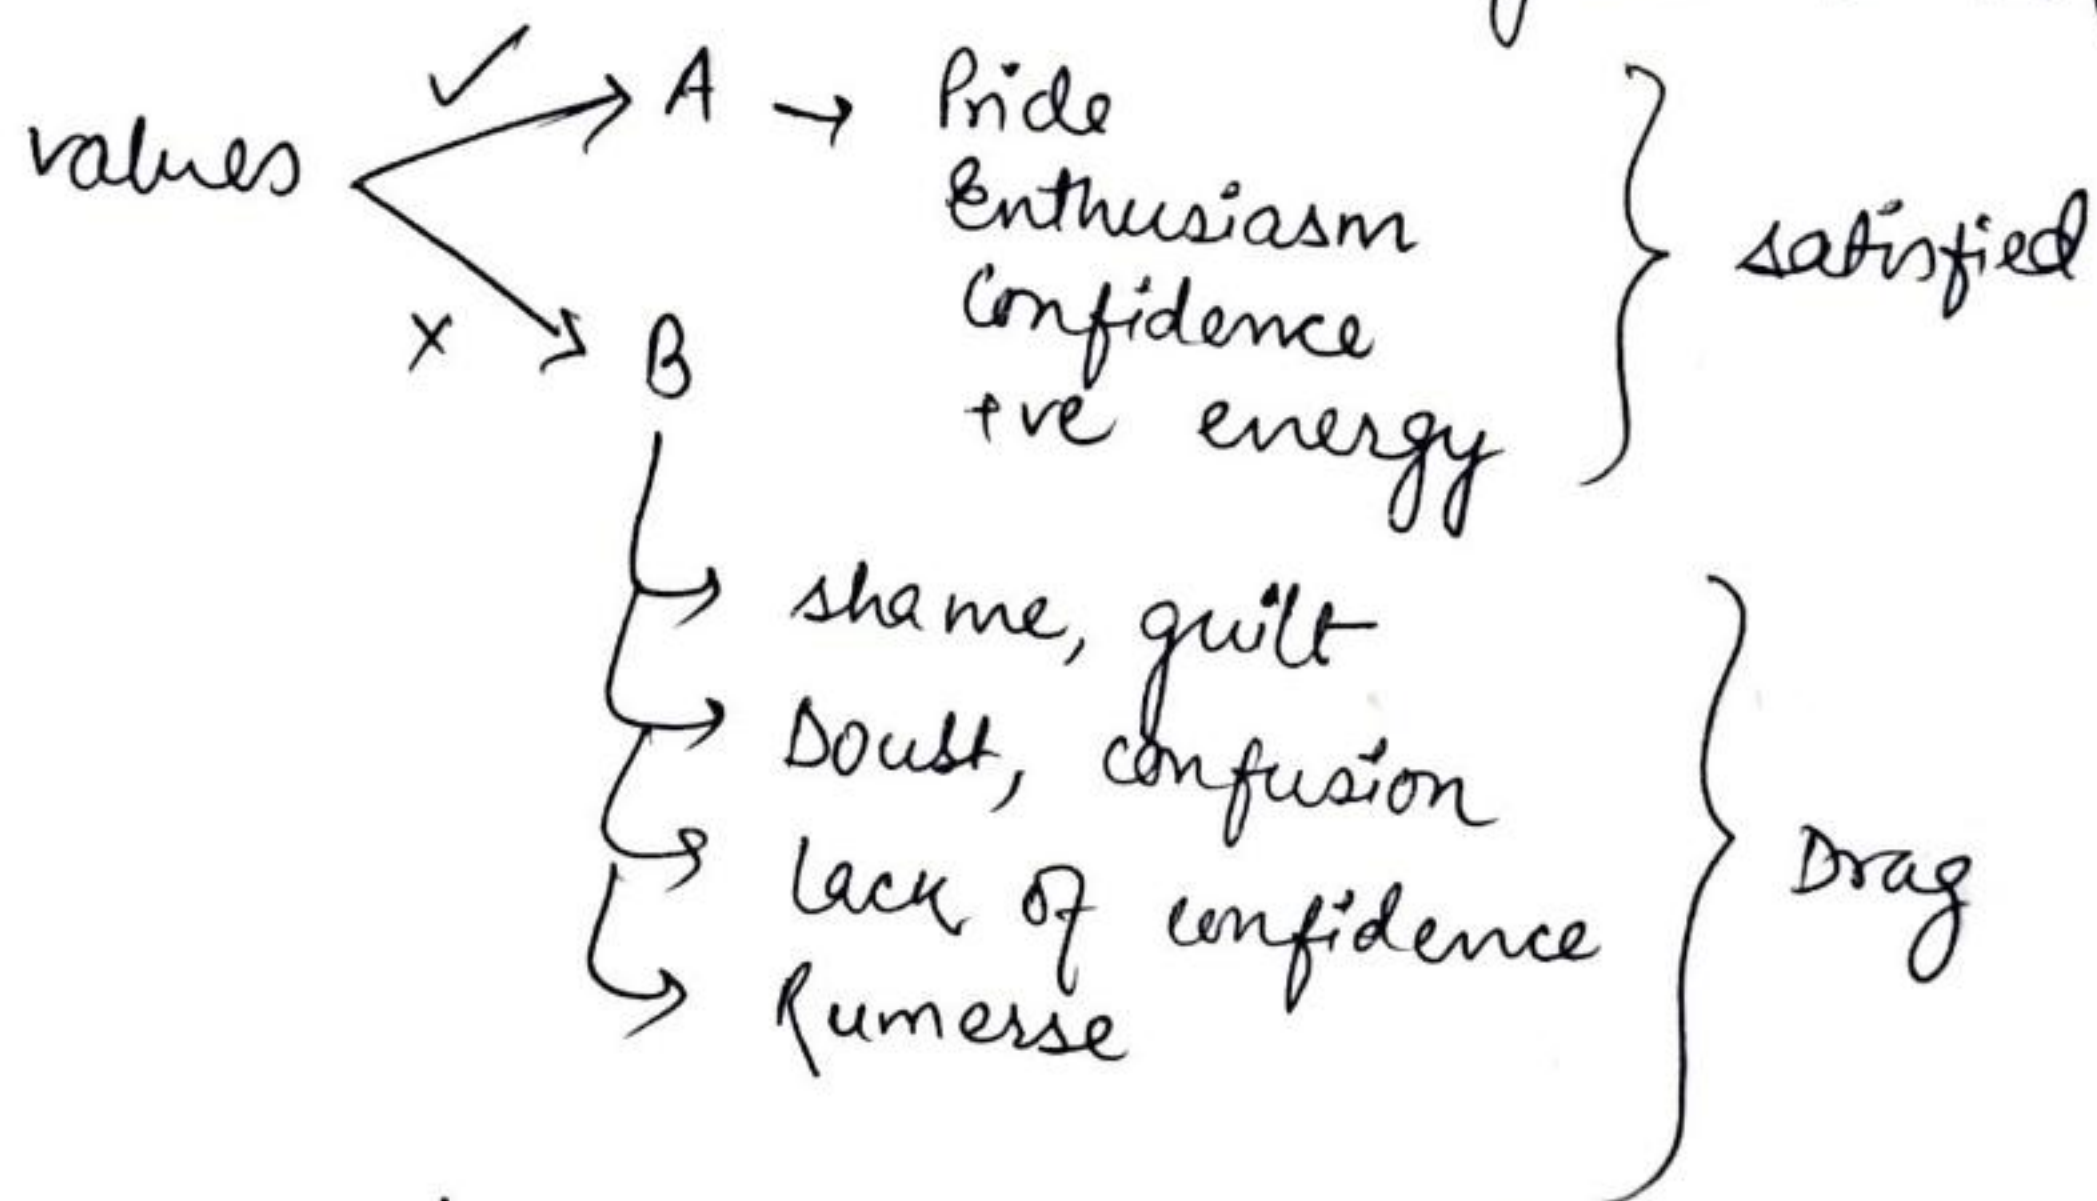 values ✓ → A → Pride
Enthusiasm
Confidence
+ve energy
} satisfied
x → B
→ shame, guilt
→ Doubt, confusion
→ lack of confidence
→ Rumerse
} Drag